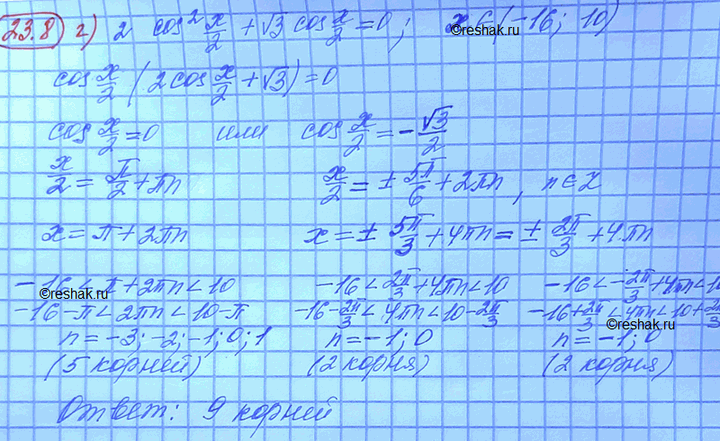 23.8) г) 2 cos² x/2 + √3 cos x/2 = 0; x ∈ (-16; 10)
©reshak.ru
cos x/2 (2cos x/2 + √3) = 0
cos x/2 = 0 или cos x/2 = -√3/2
x/2 = π/2 + πn x/2 = ± 5π/6 + 2πn, n ∈ Z
x = π + 2πn x = ± 5π/3 + 4πn = ± 2π/3 + 4πn
-16 < π + 2πn < 10 -16 < 2π/3 + 4πn < 10 -16 < -2π/3 + 4πn < 10
©reshak.ru
-16-π < 2πn < 10-π -16-2π/3 < 4πn < 10-2π/3 -16+2π/3 < 4πn < 10+2π/3
©reshak.ru
n = -3; -2; -1; 0; 1 n = -1; 0 n = -1; 0
(5 корней) (2 корня) (2 корня)
Ответ: 9 корней